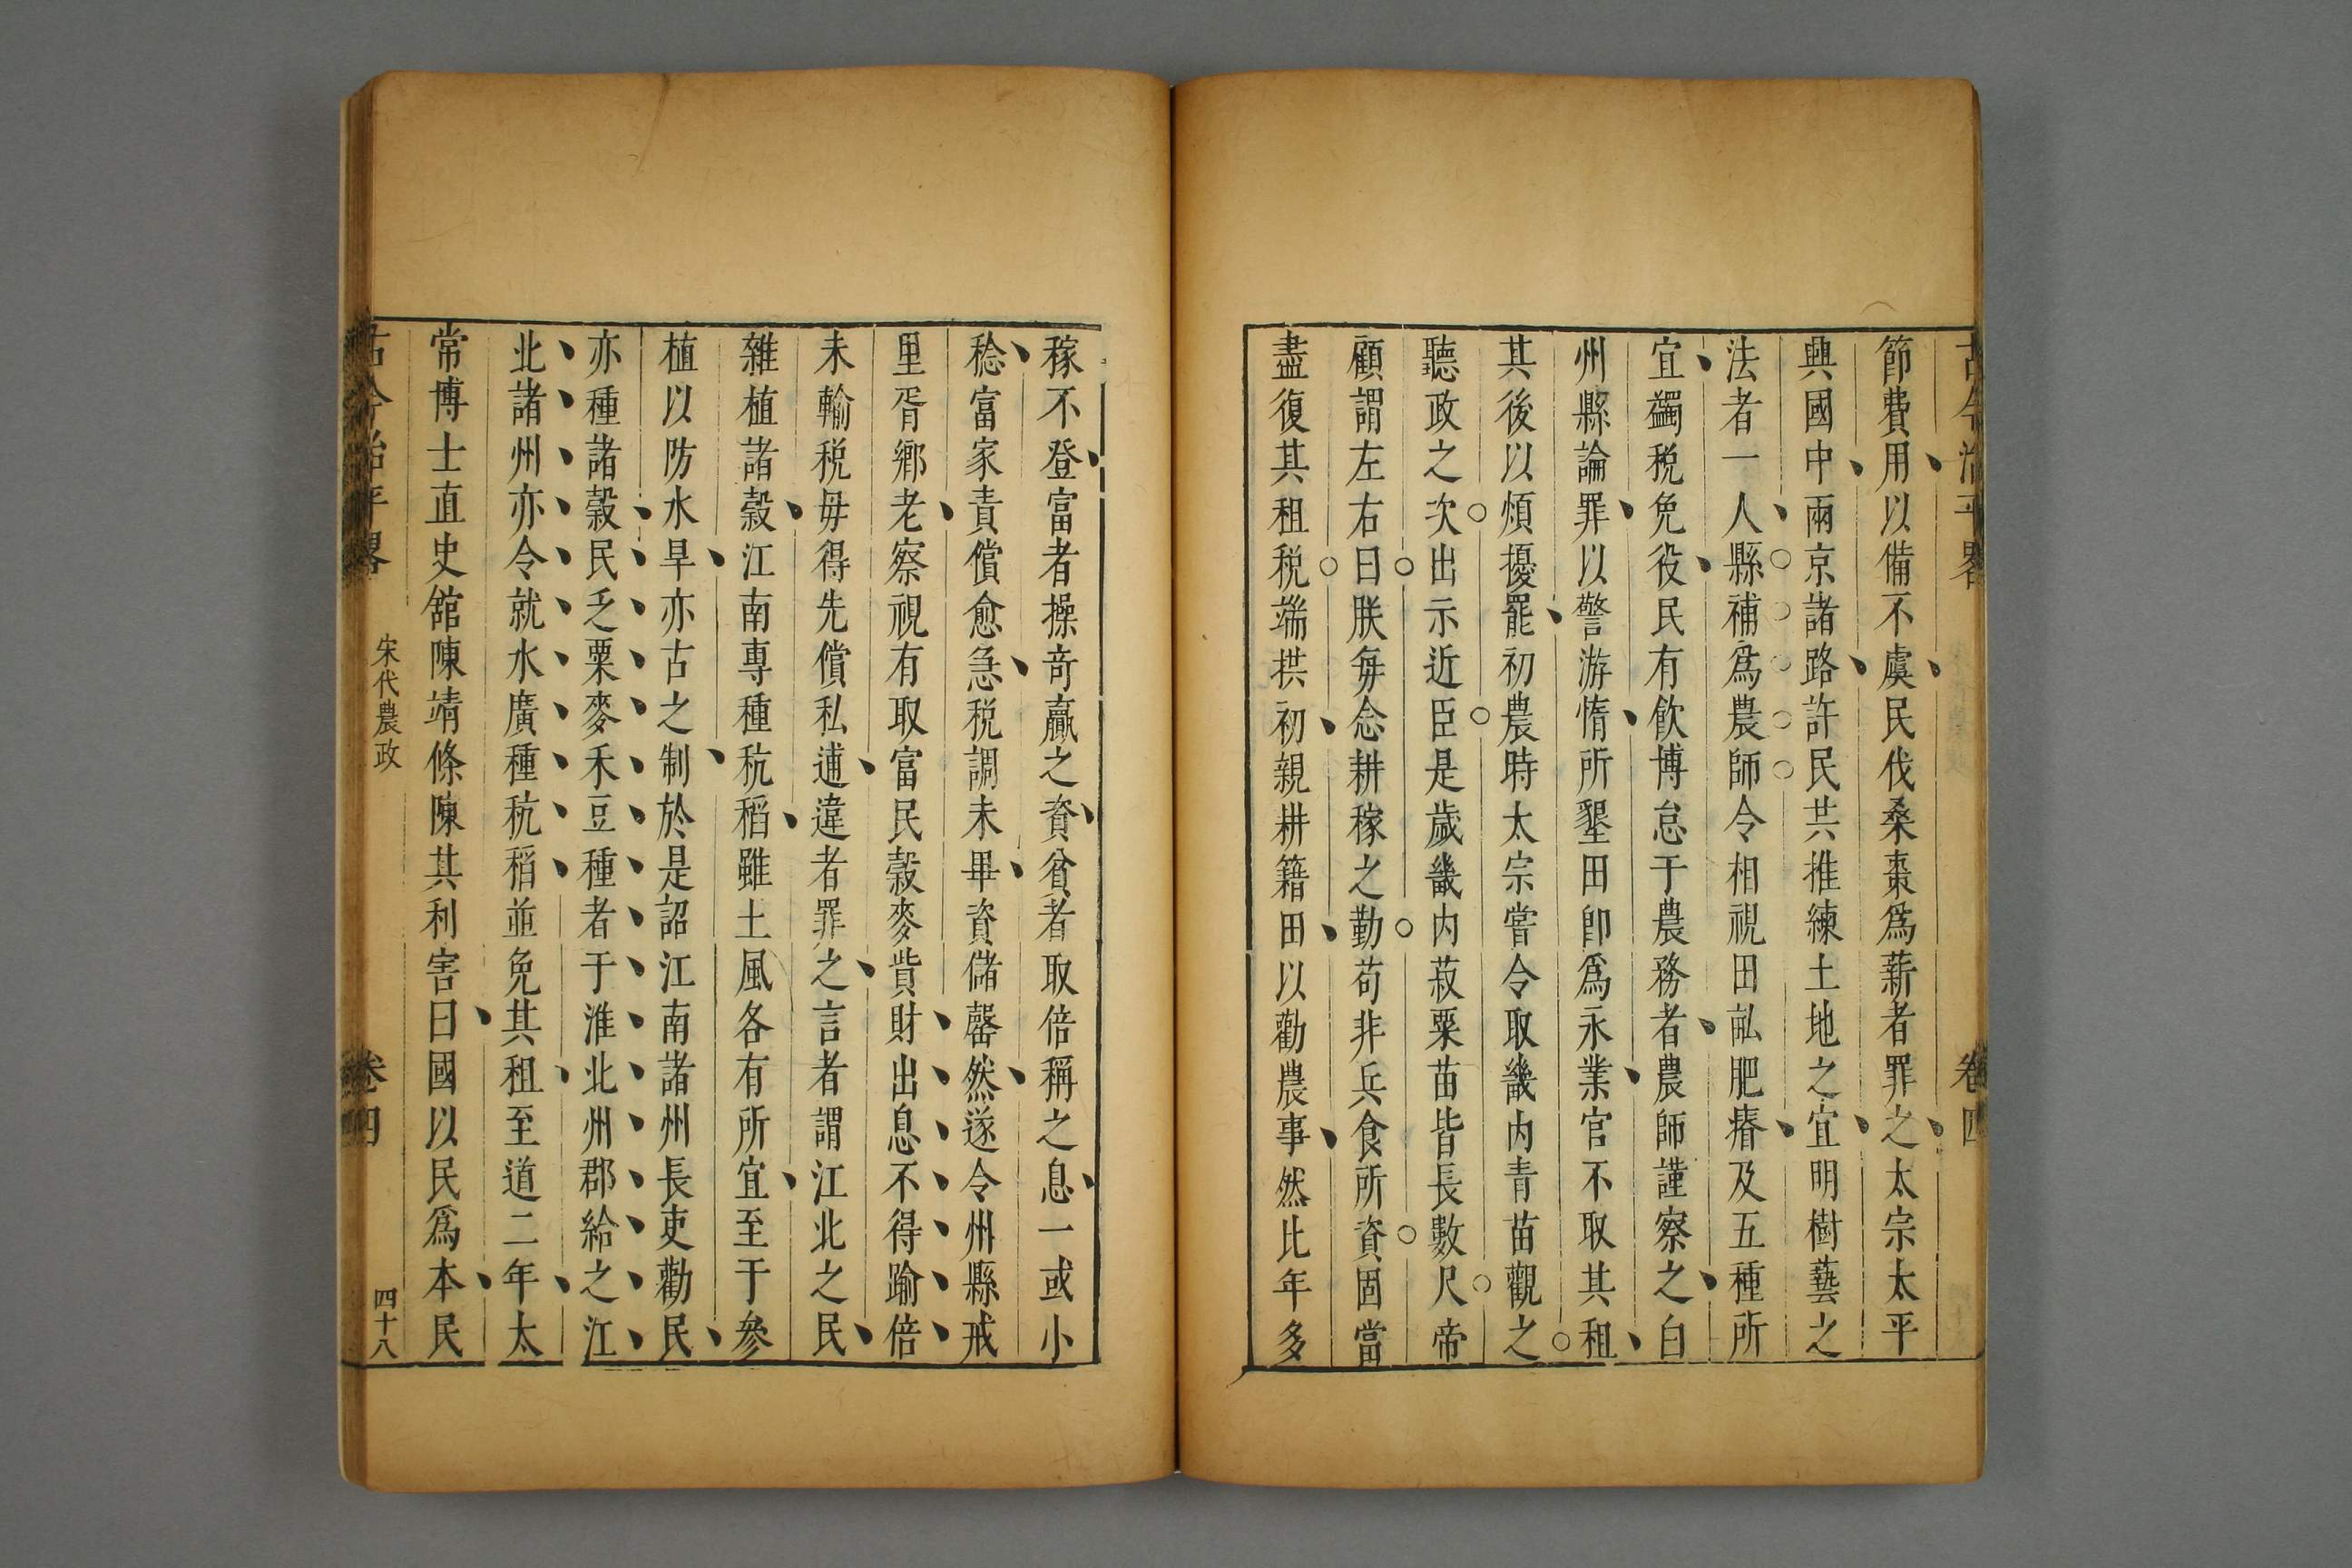 節費用以備不虞民伐桑棗爲薪者罪之太宗太平
興國中兩京諸路許民共推練土地之宜明樹藝之
法者一人縣補爲農師令相視田畝肥瘠及五種所
宜蠲税免役民有飲博怠于農務者農師謹察之白
州縣論罪以警游惰所墾田卽爲永業官不取其租
其後以煩擾罷初農時太宗嘗令取畿内青苗觀之
聽政之次出示近臣是歲畿内菽粟苗皆長數尺帝
顧謂左右曰朕毎念耕稼之勤苟非兵食所資固當
盡復其租税端拱初親耕籍田以勸農事然比年多
稼不登富者操竒贏之資貧者取倍稱之息一或小
稔富家責償愈急税調未畢資儲罄然遂令州縣戒
里胥鄉老察視有取富民穀麥貲財出息不得踰倍
未輸税毋得先償私逋違者罪之言者謂江北之民
雜植諸穀江南專種秔稻雖土風各有所宜至于參
植以防水旱亦古之制於是詔江南諸州長吏勸民
亦種諸穀民乏粟麥禾豆種者于淮北州郡給之江
北諸州亦令就水廣種秔稻並免其租至道二年太
常博士直史舘陳靖條陳其利害曰國以民爲本民
古今治平畧 宋代農政 卷四 四十八